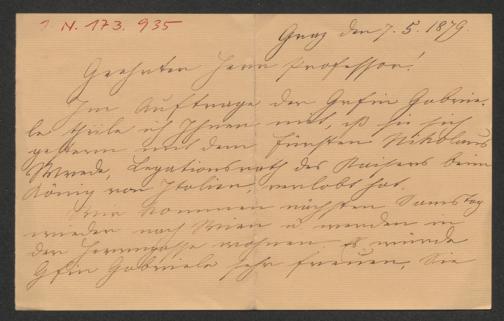 I. N. 173.935
Graz den 7. 5. 1879.
Geehrter Herr Professor!
Im Auftrage der Gräfin Gabrie-
le theile ich Ihnen mit, daß sie sich
gestern mit dem Fürsten Nikolaus
Wrede, Legationsrath des Kaisers beim
König von Italien, verlobt hat.
Wir kommen nächsten Samstag
wieder nach Wien u werden in
der Herrngasse wohnen. Es würde
Gfin Gabriele sehr freuen, Sie